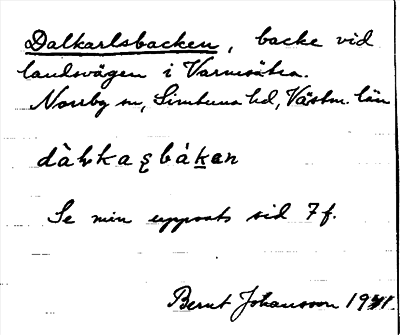 Dalkarlsbacken, backe vid
landsvägen i Varmsätra.
Norrby sn, Simtuna hd, Västm. län
Se min uppsats sid 7 f.
Bernt Johansson 1941.